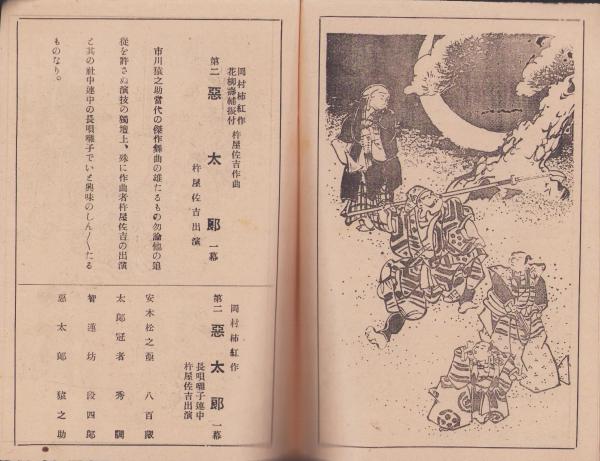 岡村柿紅作
花柳壽輔振付
杵屋佐吉作曲
第二 惡太郎 一幕
杵屋佐吉出演
市川猿之助當代の傑作舞曲の雄たるもの勿論他の追
從を許さぬ演技の獨壇上、殊に作曲者杵屋佐吉の出演
と其の社中連中の長唄囃子でいと興味のしん〱たる
ものなり。
岡村柿紅作
第二 惡太郎 一幕
長唄囃子連中
杵屋佐吉出演
安木松之亟 八百藏
太郎冠者 秀調
智蓮坊 段四郎
惡太郎 猿之助